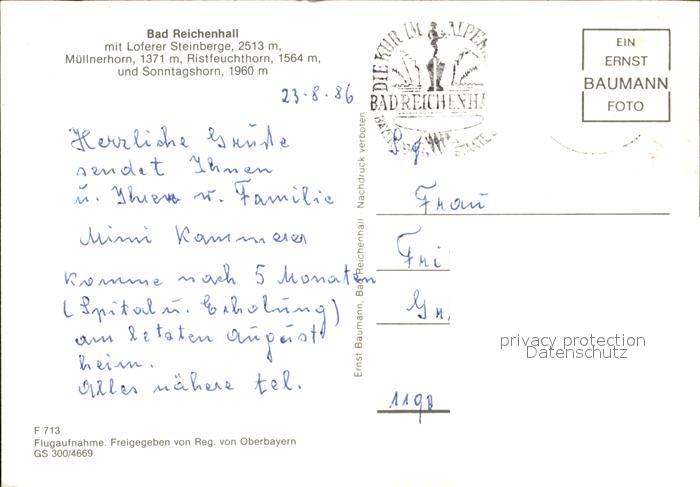 Bad Reichenhall
mit Loferer Steinberge, 2513 m,
Müllnerhorn, 1371 m, Ristfeuchthorn, 1564 m,
und Sonntagshorn, 1960 m
23-8-86
Herzliche Grüße
sendet Ihnen
u. Ihrer w. Familie
Mimi Kammerer
Komme nach 5 Monaten
(Spital u. Erholung)
am letzten August
heim.
Alles nähere tel.
F 713
Flugaufnahme. Freigegeben von Reg. von Oberbayern
GS 300/4669
Ernst Baumann, Bad Reichenhall Nachdruck verboten
DIE KUR IM ALPEN
BAD REICHENHA
EIN
ERNST
BAUMANN
FOTO
Frau
Fri
Gr.
1190
privacy protection
Datenschutz